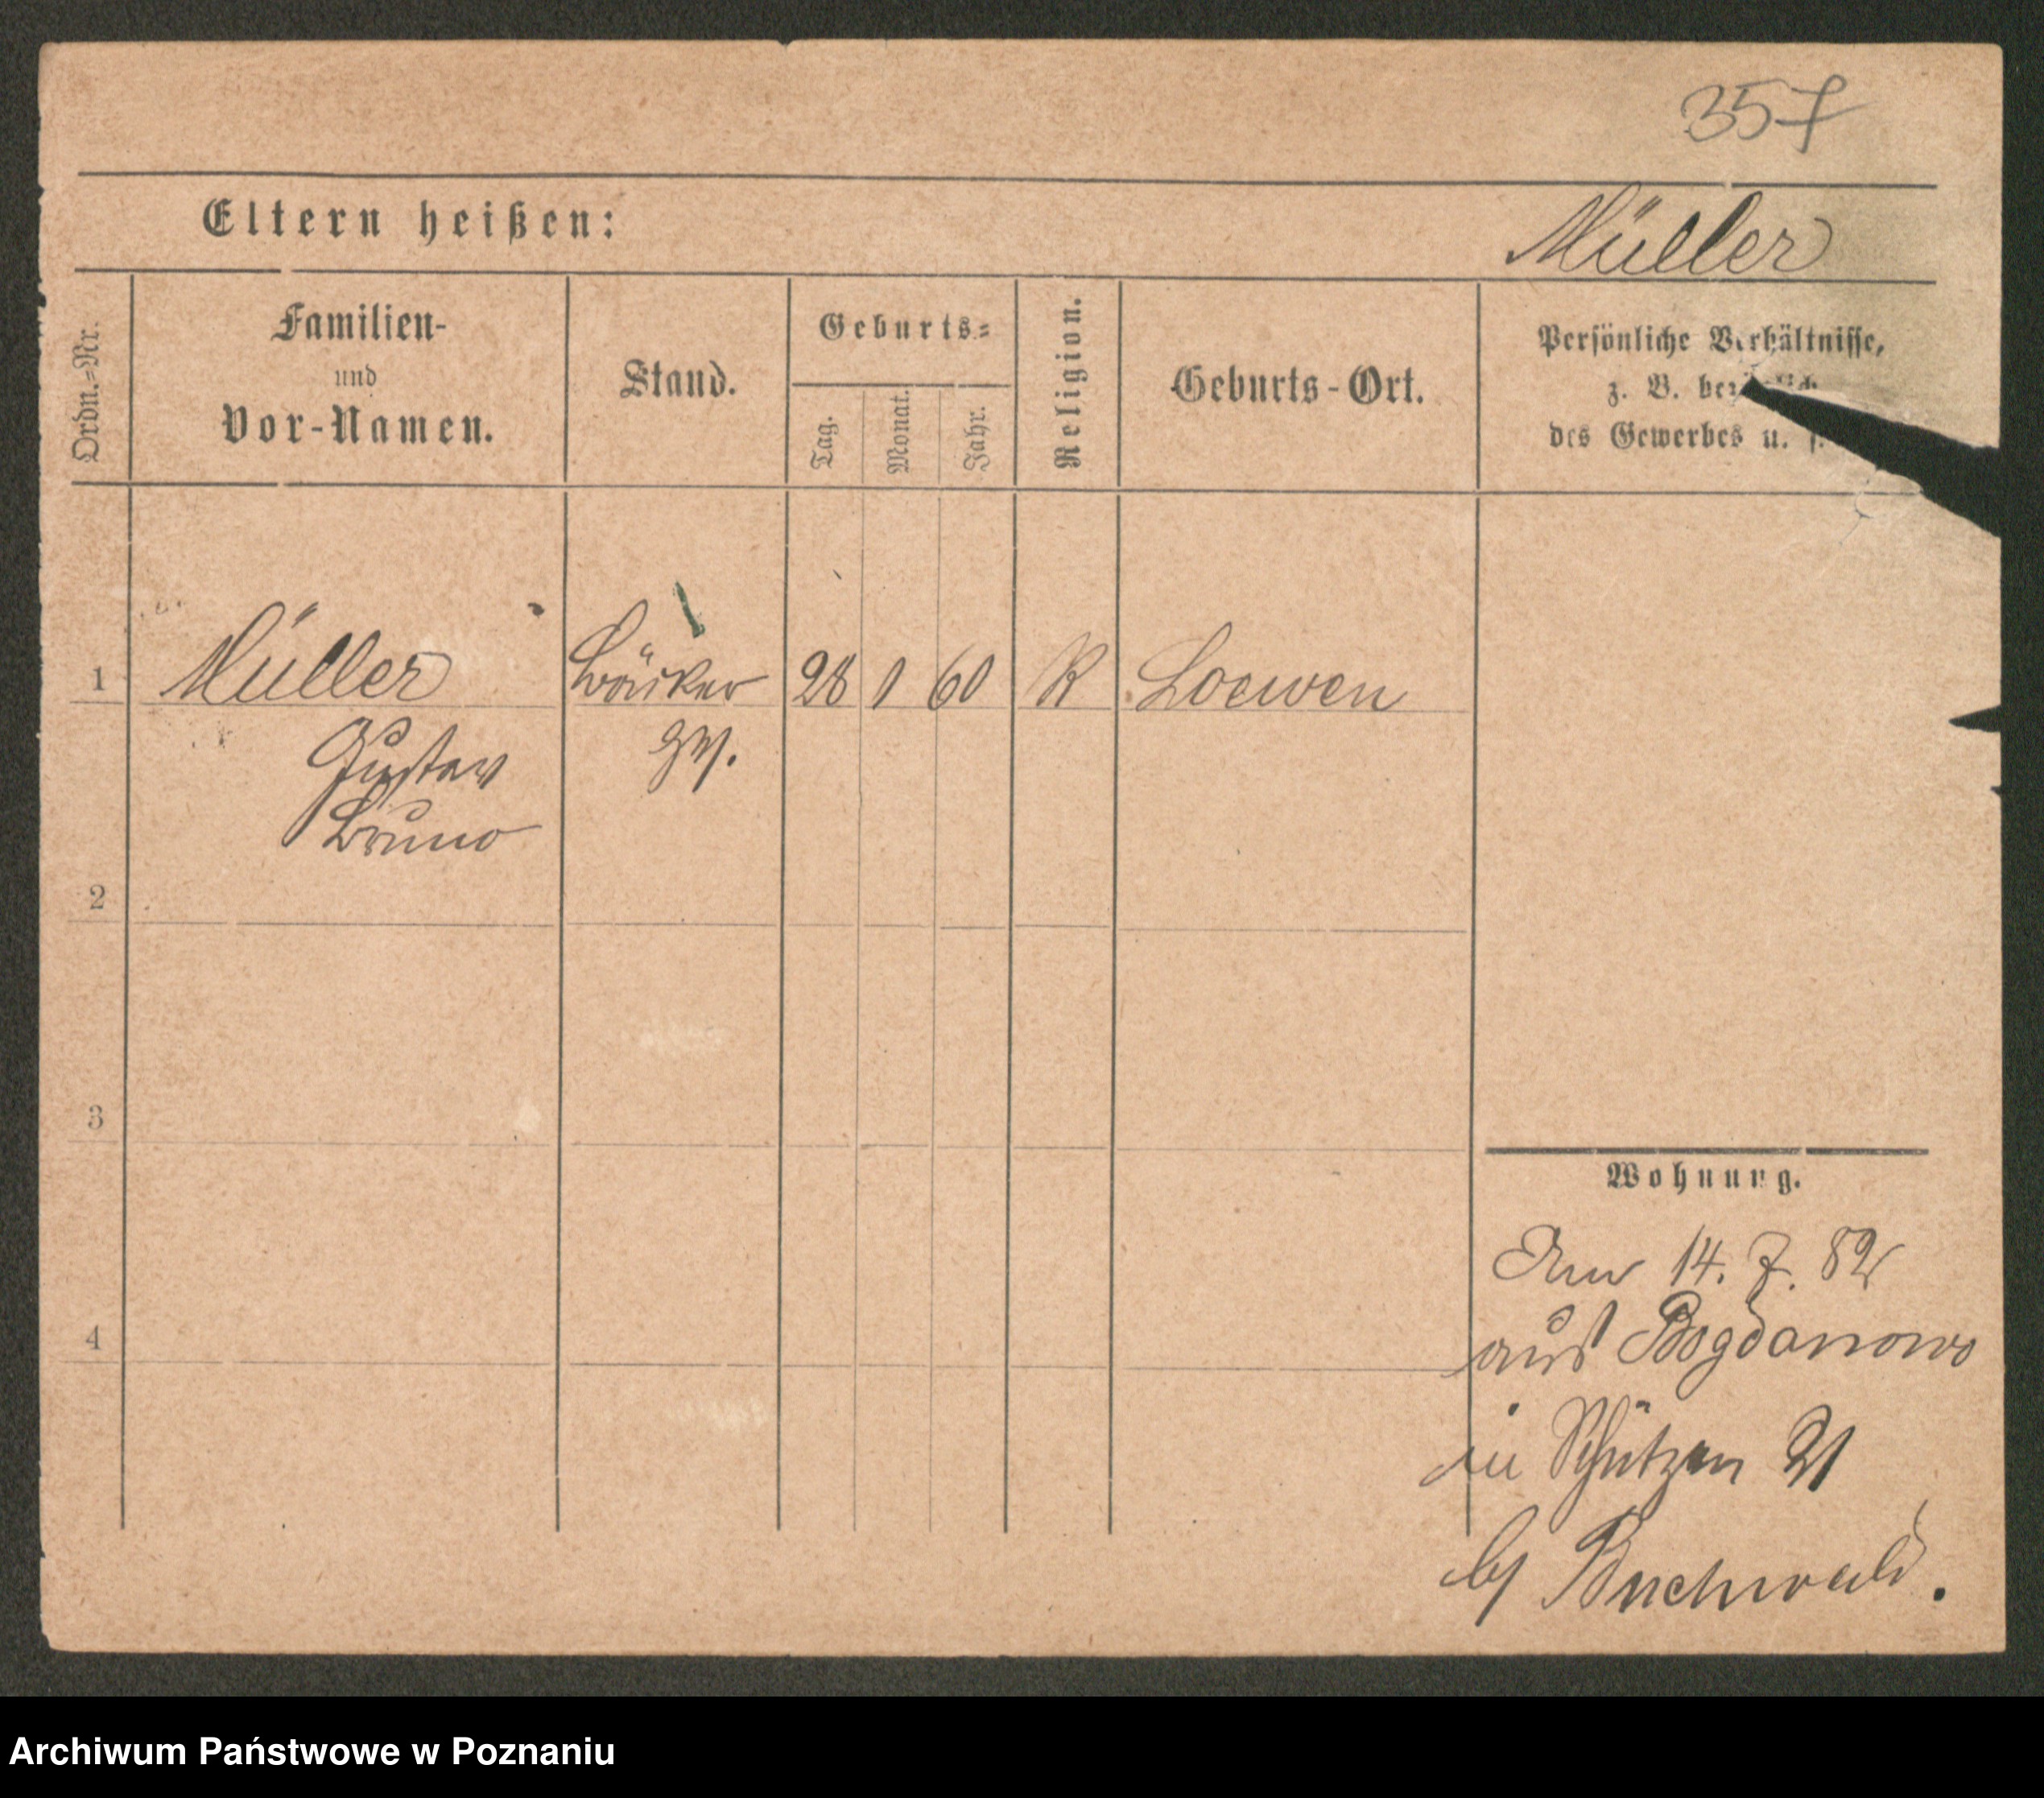 357
Eltern heißen:
Müller
Ordn.=Nr.
Familien-
und
Vor-Namen.
Stand.
Geburts=
Tag.
Monat.
Jahr.
Religion.
Geburts-Ort.
Persönliche Verhältnisse,
z. B. bezüglich
des Gewerbes u.
1 Müller 28 1 60 K Loewen
Gustav
Bruno
2
3
4
Wohnung.
14. 7. 82
aus Bogdanowo
in Schützen 21
b/ Buchwald.
Archiwum Państwowe w Poznaniu